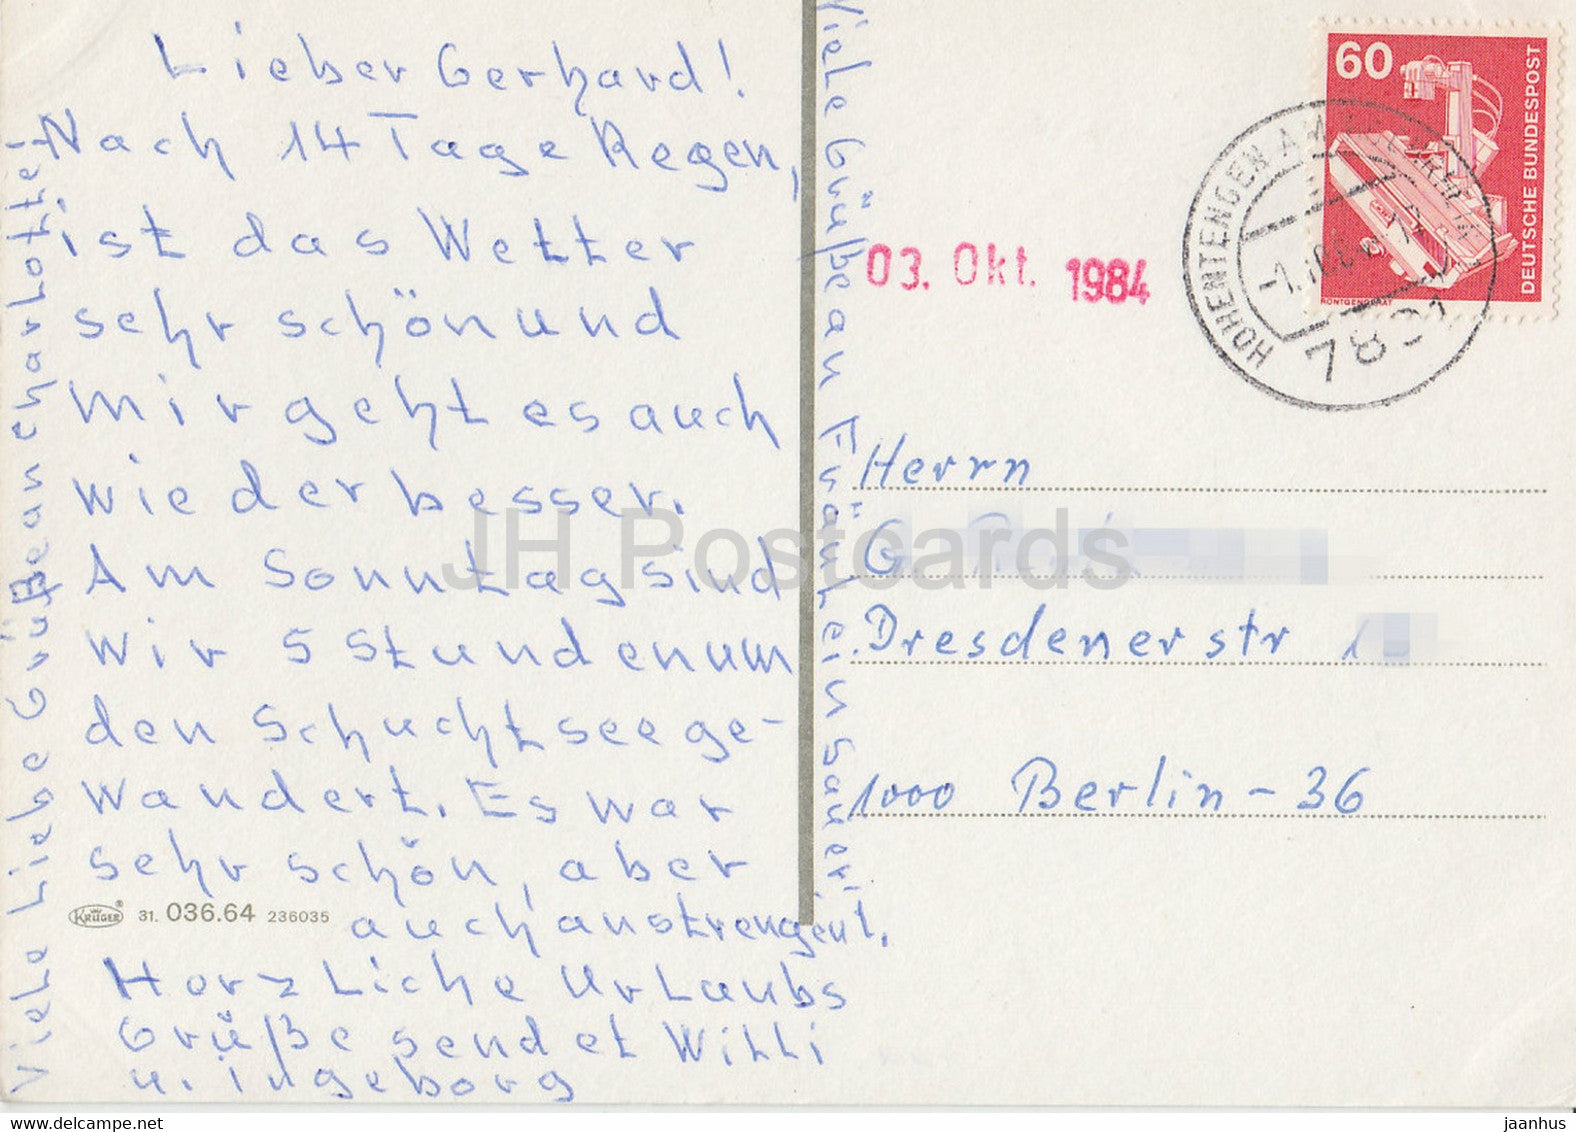 Lieber Gerhard!
Nach 14 Tage Regen,
ist das Wetter
sehr schön und
mir geht es auch
wieder besser.
Am Sonntag sind
wir 5 Stunden um
den Schuchtsee ge-
wandert. Es war
sehr schön, aber
auch anstrengent.
Herzliche Urlaubs
Grüße sendet Willi
u. ingeborg
Viele Liebe Grüße an charlotte!
Viele Grüße an Fräulein Sauer!
KRÜGER
31. 036.64 236035
60
DEUTSCHE BUNDESPOST
RÖNTGENGERÄT
HOHENTENGEN AM
7891
03. Okt. 1984
Herrn
G.
Dresdenerstr 1
1000 Berlin - 36
JH Postcards
www.delcampe.net
jaanhus